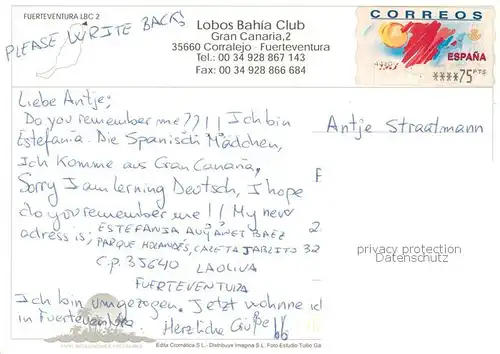 FUERTEVENTURA LBC 2
PLEASE WRITE BACKS
Lobos Bahía Club
Gran Canaria,2
35660 Corralejo - Fuerteventura
Tel.: 00 34 928 867 143
Fax: 00 34 928 866 684
CORREOS
ESPAÑA
****75 PTS
Liebe Antje;
Do you remember me??!! Ich bin
Estefania. Die Spanisch Mädchen,
Ich Komme aus Gran Canaria,
Sorry I am lerning Deutsch, I hope
do you remember me!! My new
adress is; ESTEFANIA
BAEZ
PARQUE HOLANDÉS, CALETA JABLITO 32
C.P. 35640 LAOLIVA
FUERTEVENTURA
Ich bin umgezogen. Jetzt wohnne ic
in Fuerteventura.
Herzliche Grüße
Antje Straatmann
privacy protection
Datenschutz
Edita Cromática S.L. - Distribuye Imagina S.L. Foto Estudio Tullio Ga